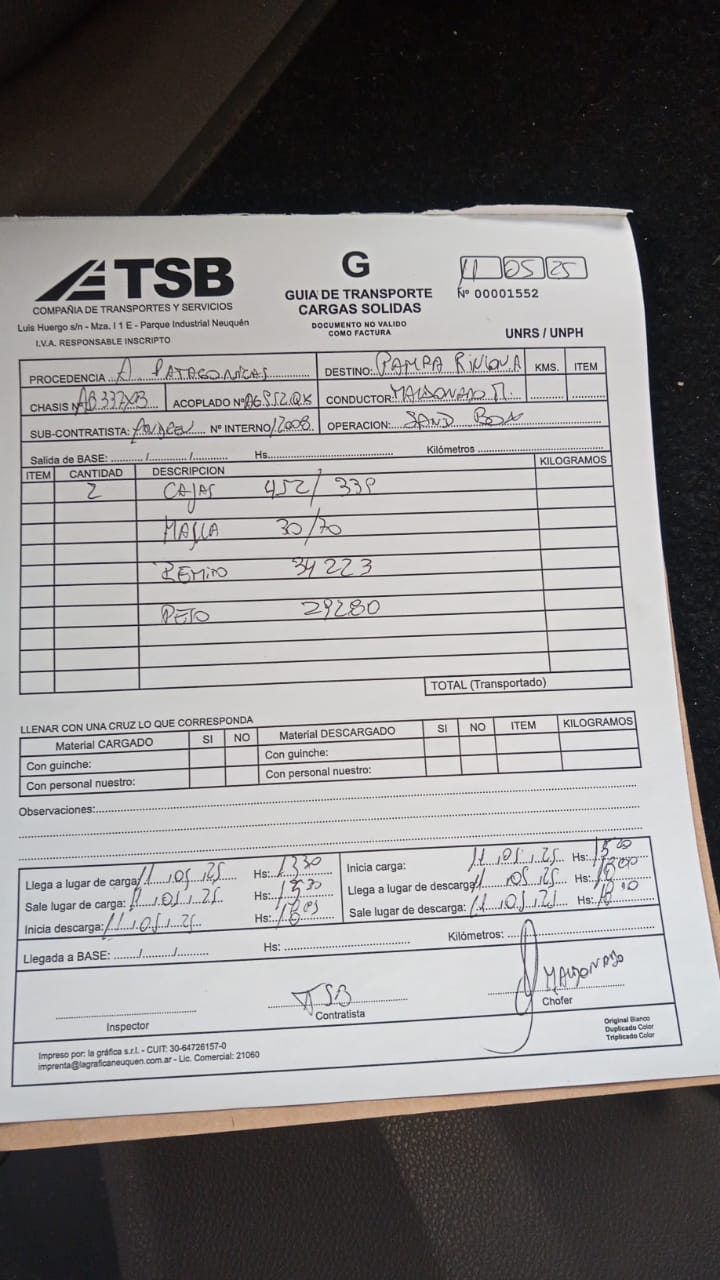 TSB
COMPAÑIA DE TRANSPORTES Y SERVICIOS
Luis Huergo s/n - Mza. I 1 E - Parque Industrial Neuquén
I.V.A. RESPONSABLE INSCRIPTO
G
GUIA DE TRANSPORTE
CARGAS SOLIDAS
DOCUMENTO NO VALIDO
COMO FACTURA
11 05 25
Nº 00001552
UNRS / UNPH
PROCEDENCIA A PATAGONICAS DESTINO: PAMPA KMS. ITEM
CHASIS Nº AB337XB ACOPLADO Nº CONDUCTOR: MALDONADO M.
SUB-CONTRATISTA: ANDREU Nº INTERNO/2008 OPERACION: SAND BOX
Salida de BASE: / / Hs. Kilómetros
ITEM CANTIDAD DESCRIPCION KILOGRAMOS
2 CAJAS 452/ 339
MALLA 30/70
REMITO 34223
PESO 29280
TOTAL (Transportado)
LLENAR CON UNA CRUZ LO QUE CORRESPONDA
Material CARGADO SI NO Material DESCARGADO SI NO ITEM KILOGRAMOS
Con guinche: Con guinche:
Con personal nuestro: Con personal nuestro:
Observaciones:
Llega a lugar de carga: 11/05/25 Hs: 1330 Inicia carga: 11/05/25 Hs: 1520
Sale lugar de carga: 11/05/25 Hs: 1530 Llega a lugar de descarga: 11/05/25 Hs: 1800
Inicia descarga: 11/05/25 Hs: 1805 Sale lugar de descarga: 11/05/25 Hs: 1810
Llegada a BASE: / / Hs: Kilómetros:
TSB MALDONADO
Inspector Contratista Chofer
Impreso por: la gráfica s.r.l. - CUIT: 30-64726157-0
imprenta@lagraficaneuquen.com.ar - Lic. Comercial: 21060
Original Blanco
Duplicado Color
Triplicado Color